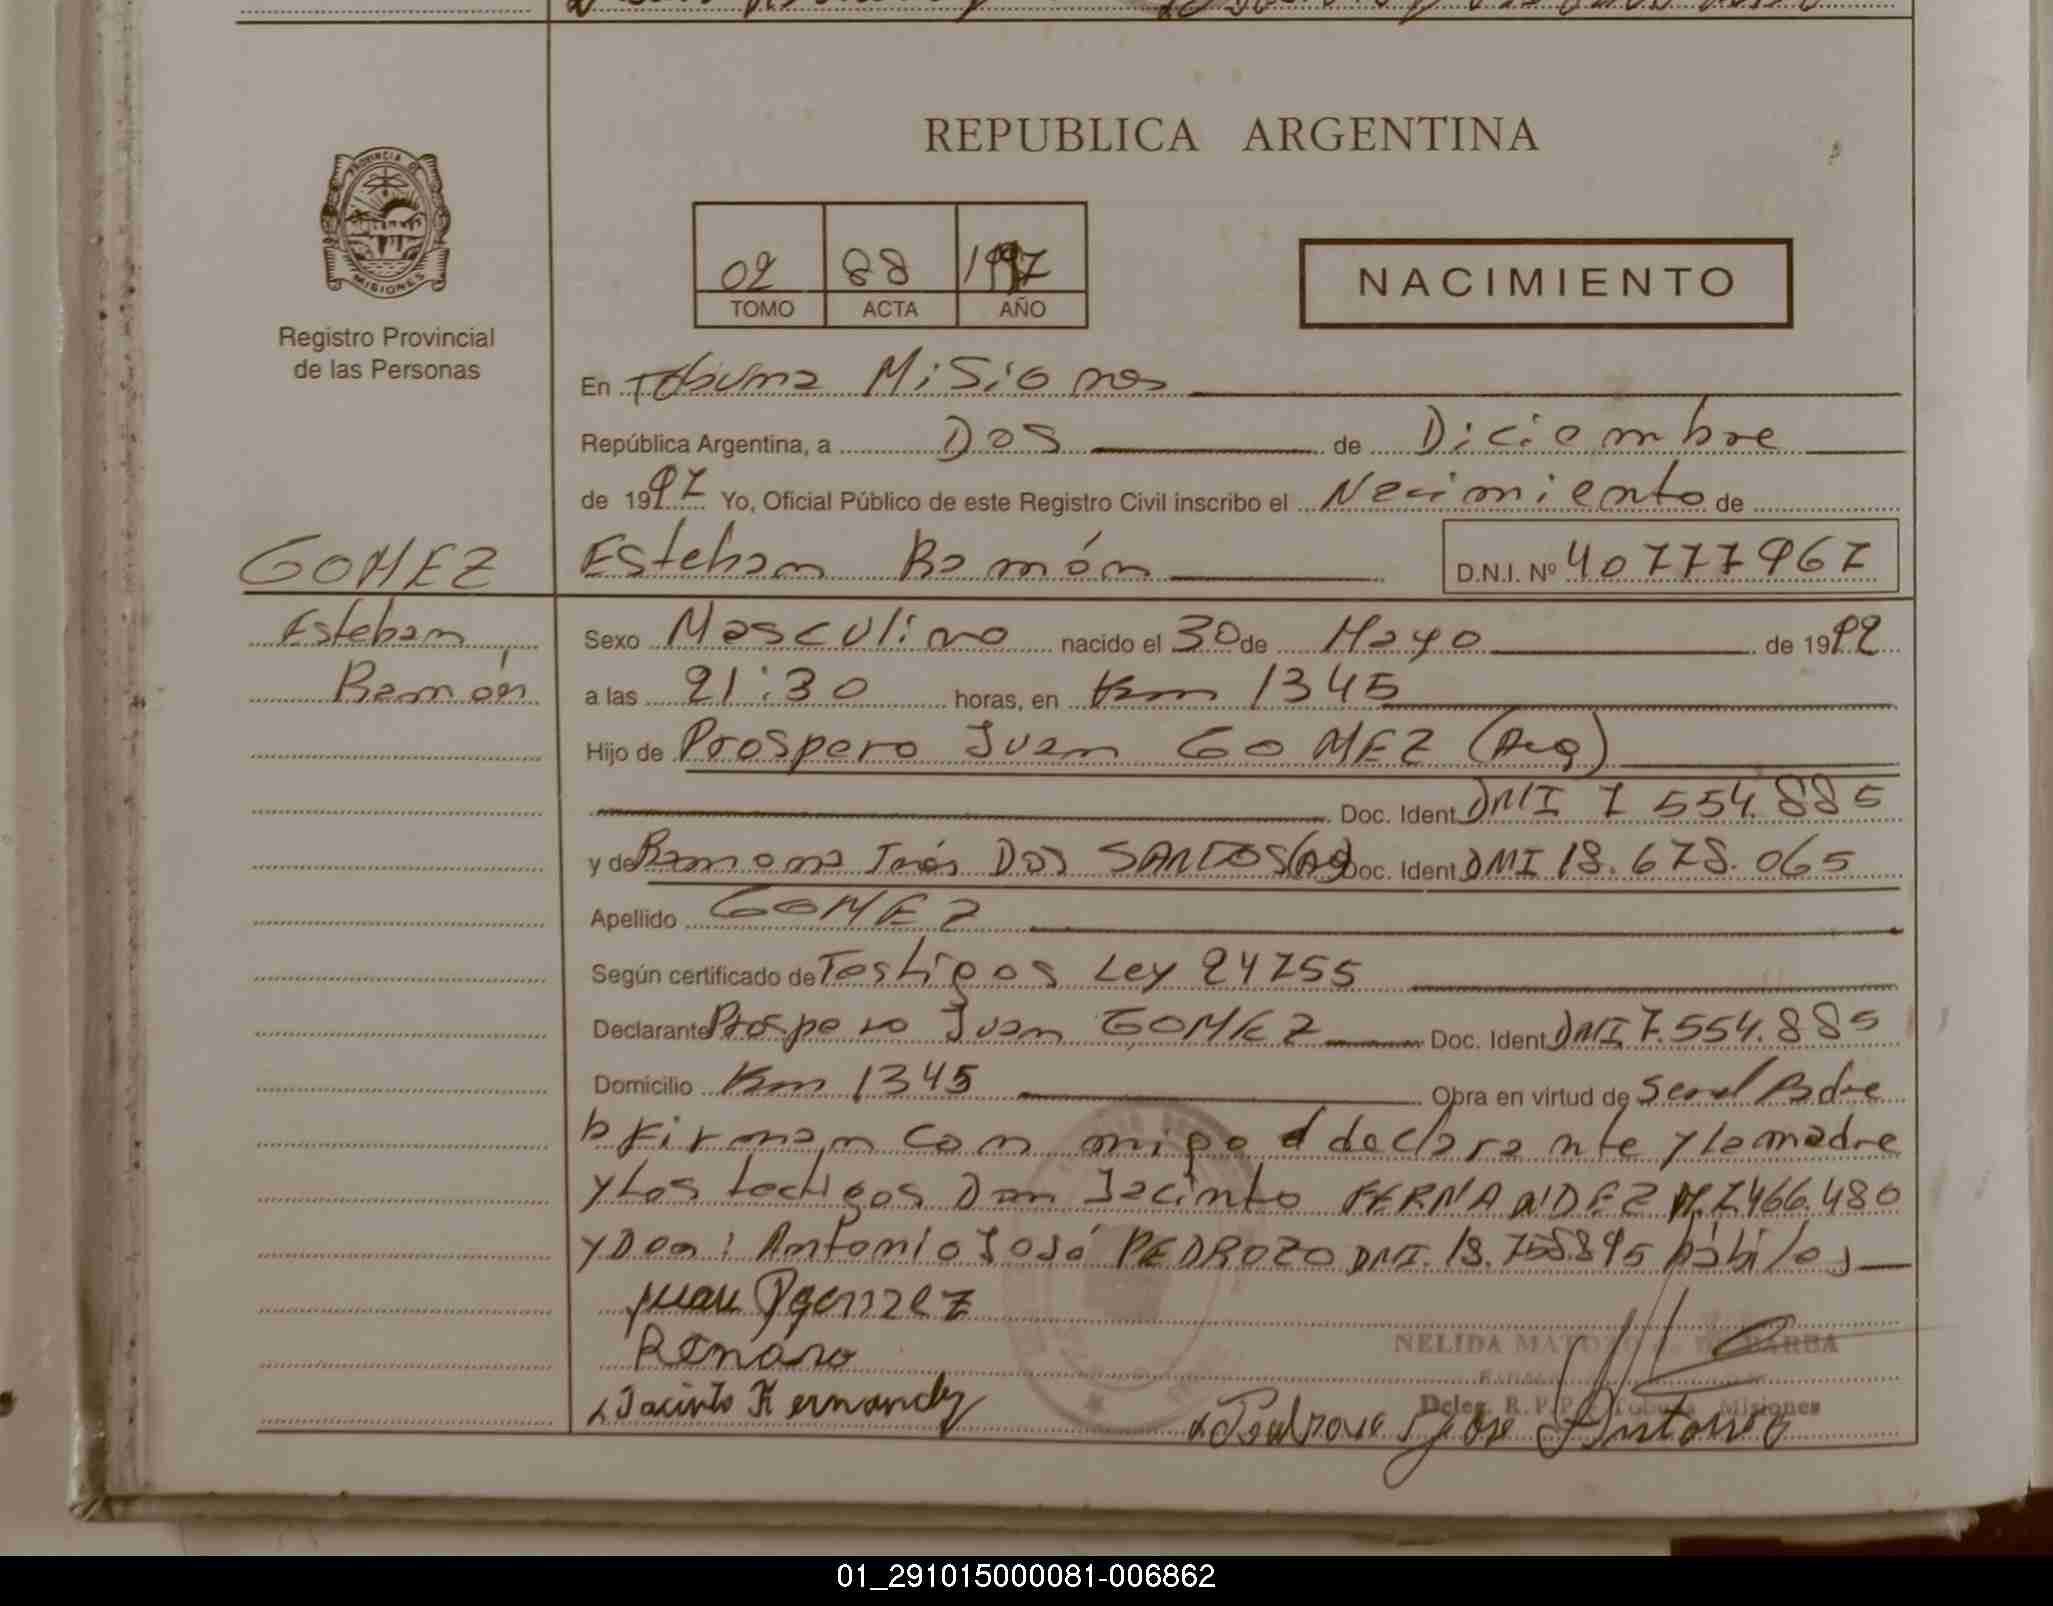 REPUBLICA ARGENTINA
PROVINCIA DE
MISIONES
Registro Provincial
de las Personas
02 88 1997
TOMO ACTA AÑO
NACIMIENTO
En Tobuna Misiones
República Argentina, a Dos de Diciembre
de 1997 Yo, Oficial Público de este Registro Civil inscribo el Nacimiento de
GOMEZ Esteban Ramón D.N.I. Nº 40777967
Esteban Sexo Masculino nacido el 30 de Mayo de 1992
Ramón a las 21:30 horas, en Km 1345
Hijo de Prospero Juan GOMEZ (Arg)
Doc. Ident DNI 7 554.885
y de Ramona Inés DOS SANTOS (Arg) Doc. Ident DNI 18.678.065
Apellido GOMEZ
Según certificado de Testigos Ley 24755
Declarante Prospero Juan GOMEZ Doc. Ident DNI 7.554.885
Domicilio Km 1345 Obra en virtud de Ser el Padre
Firman con migo el declarante y la madre
y Los testigos Don Jacinto FERNANDEZ 7.466.480
y Don: Antonio José PEDROZO DNI. 18.758.895 hábiles
Juan
NELIDA
Jacinto
Deleg. R.P.P. Tobuna Misiones
Jose Antonio
01_291015000081-006862